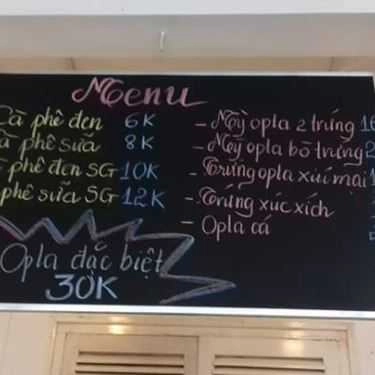 Menu
Cà phê đen 6K
phê sữa 8K
phê đen SG 10K
phê sữa SG 12K
Opla đặc biệt
30K
- Mỳ opla 2 trứng
- Mỳ opla bò trứng
- Trứng opla xíu mại
- Trứng xúc xích
- Opla cá